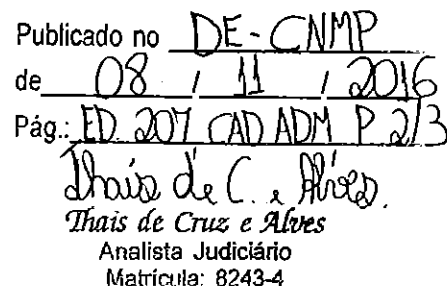 Publicado no DE-CNMP
de 08 / 11 / 2016
Pág.: ED. 207 CAD ADM P 2/3
Thais de C. e Alves
Thais de Cruz e Alves
Analista Judiciário
Matrícula: 8243-4